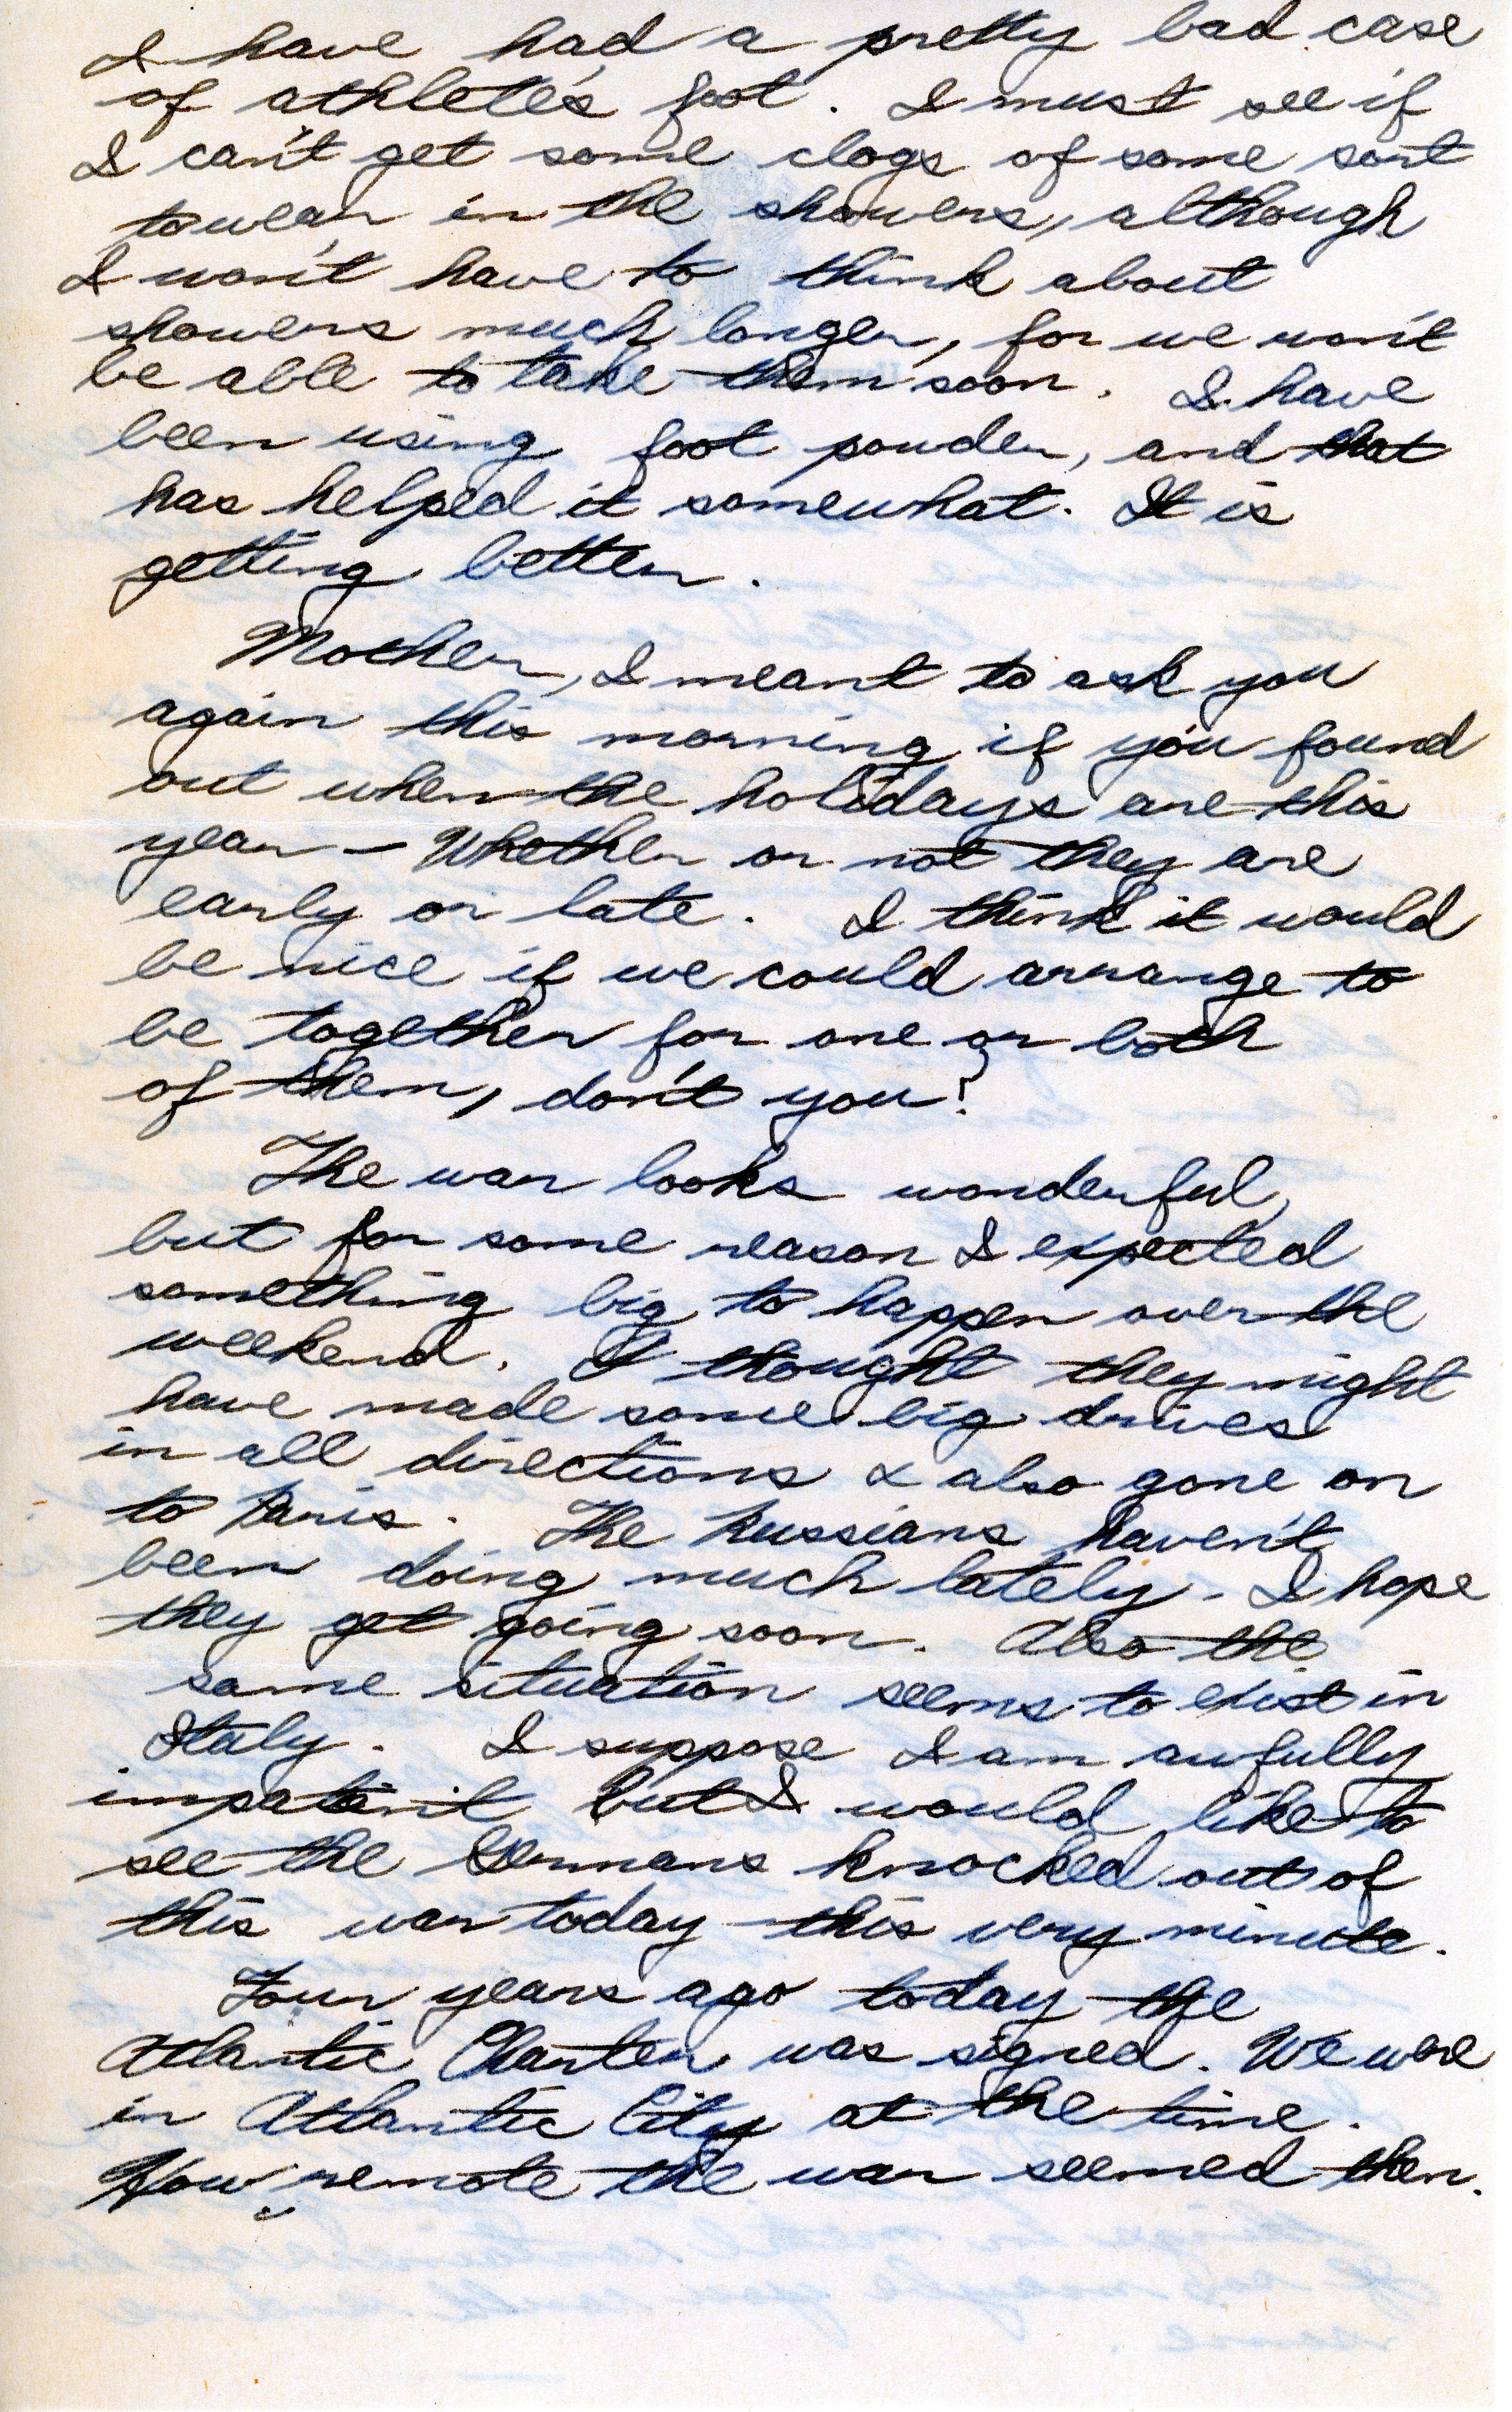 I have had a pretty bad case
of athlete's foot. I must see if
I can't get some clogs of some sort
to wear in the showers, although
I won't have to think about
showers much longer, for we won't
be able to take them soon. I have
been using foot powder, and that
has helped it somewhat. It is
getting better.
Mother, I meant to ask you
again this morning if you found
out when the holidays are this
year - Whether or not they are
early or late. I think it would
be nice if we could arrange to
be together for one or both
of them, don't you?
The war looks wonderful,
but for some reason I expected
something big to happen over the
weekend. I thought they might
have made some big drives
in all directions & also gone on
to Paris. The Russians haven't
been doing much lately. I hope
they get going soon. Also the
same situation seems to exist in
Italy. I suppose I am awfully
impatient but I would like to
see the Germans knocked out of
this war today this very minute.
Four years ago today the
Atlantic Charter was signed. We were
in Atlantic City at the time.
How remote the war seemed then.